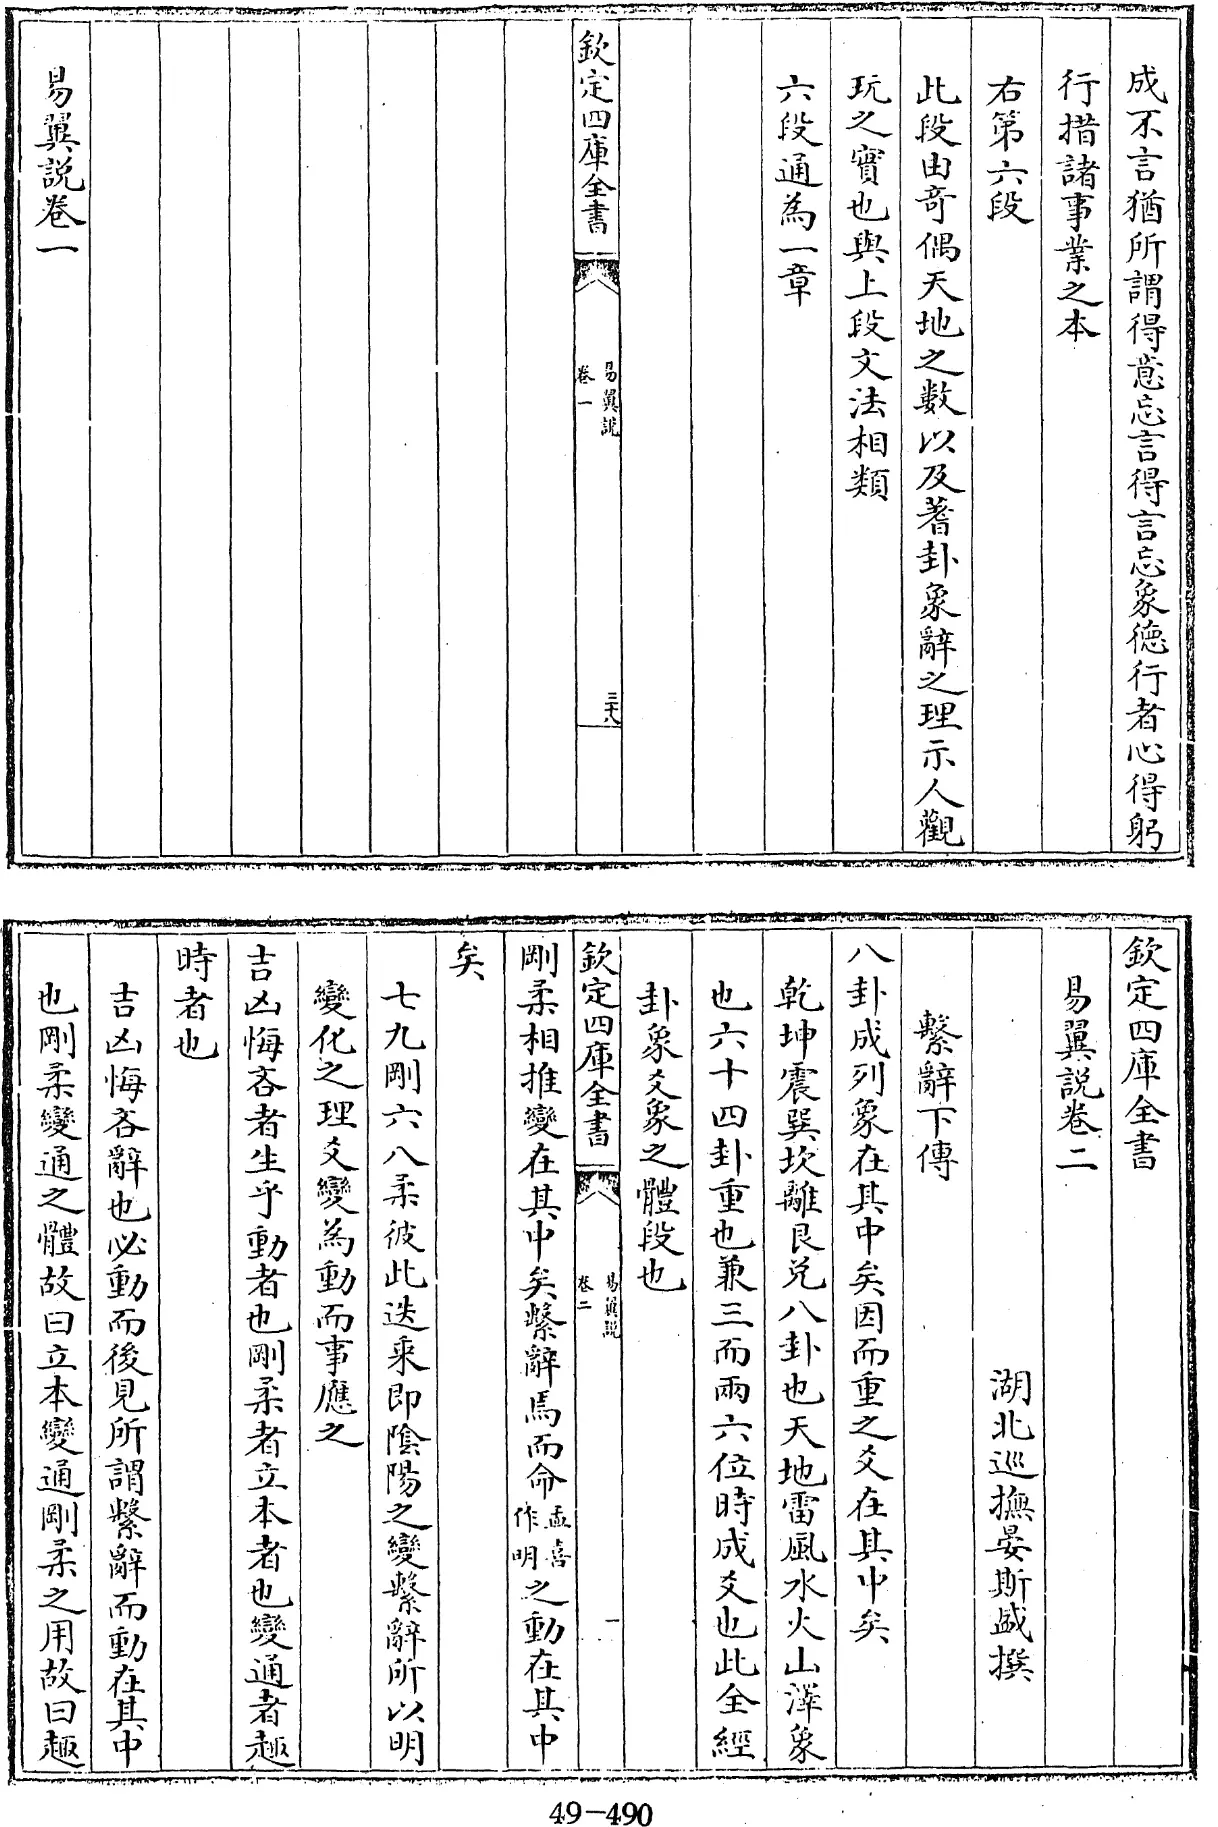 成不言猶所謂得意忘言得言忘象德行者心得躬
行措諸事業之本
右第六段
此段由奇偶天地之數以及蓍卦象辭之理示人觀
玩之實也與上段文法相類
六段通為一章
欽定四庫全書
易翼說
卷一
三十八
易翼説卷一
欽定四庫全書
易翼説卷二
湖北巡撫晏斯盛撰
繫辭下傳
八卦成列象在其中矣因而重之爻在其中矣
乾坤震巽坎離艮兌八卦也天地雷風水火山澤象
也六十四卦重也兼三而兩六位時成爻也此全經
卦象爻象之體段也
欽定四庫全書
易翼說
卷二
一
剛柔相推變在其中矣繫辭焉而命孟喜作明之動在其中
矣
七九剛六八柔彼此迭乘即陰陽之變繫辭所以明
變化之理爻變為動而事應之
吉凶悔吝者生乎動者也剛柔者立本者也變通者趣
時者也
吉凶悔吝辭也必動而後見所謂繫辭而動在其中
也剛柔變通之體故曰立本變通剛柔之用故曰趣
49-490